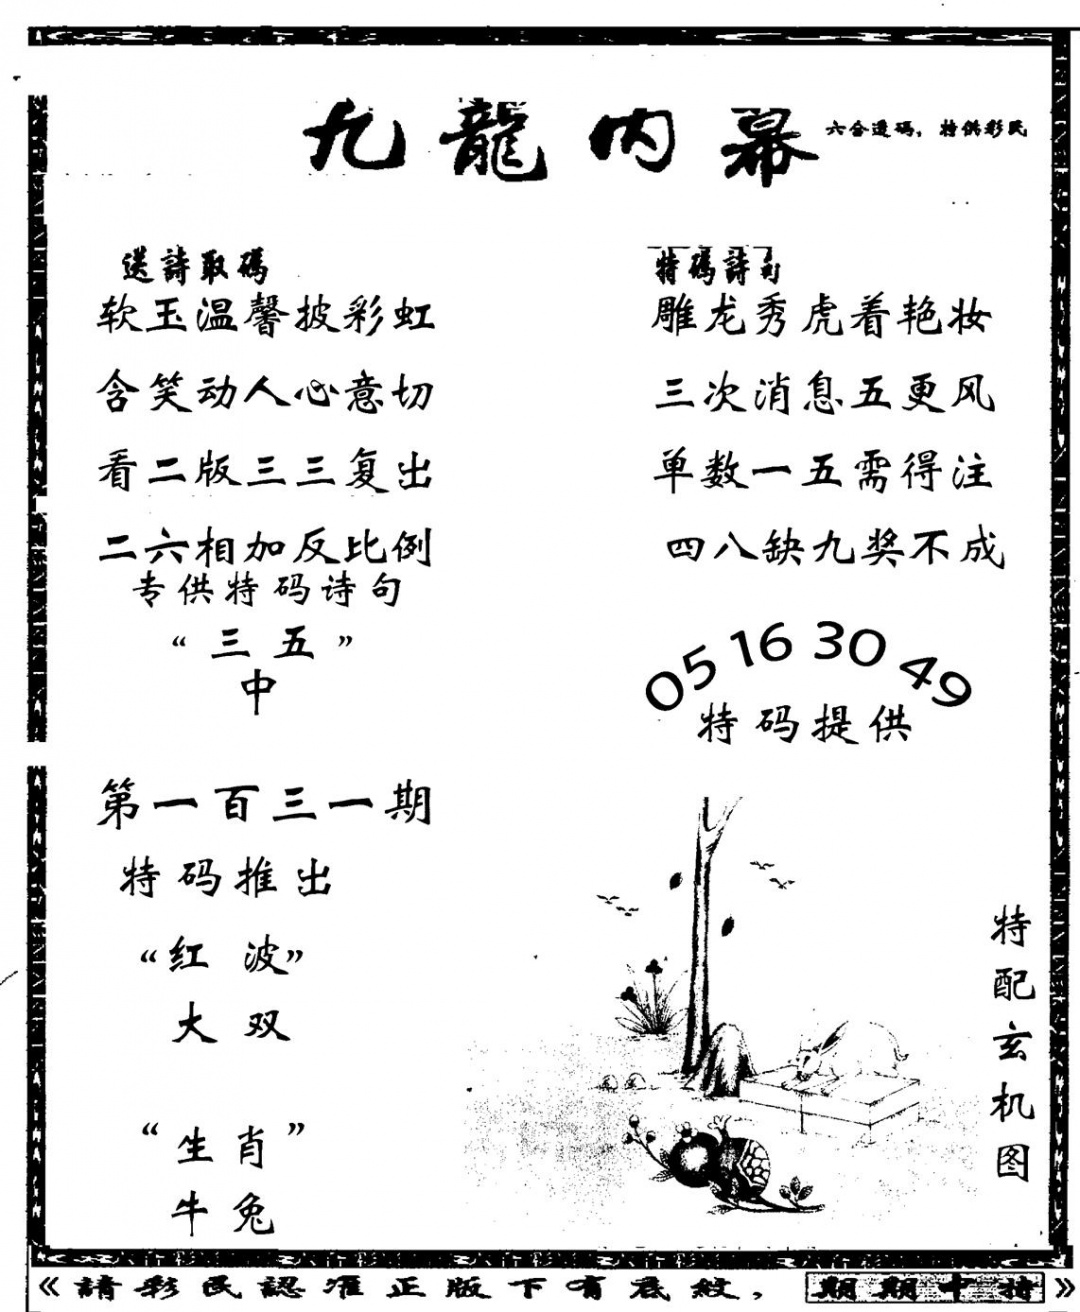 九龍内幕
六合透码，特供彩民
送詩取碼
软玉温馨披彩虹
含笑动人心意切
看二版三三复出
二六相加反比例
专供特码诗句
“三五”
中
第一百三一期
特码推出
“红波”
大双
“生肖”
牛兔
特碼詩句
雕龙秀虎着艳妆
三次消息五更风
单数一五需得注
四八缺九奖不成
05 16 30 49
特码提供
特配玄机图
《請彩民認准正版下有底紋，期期中特》